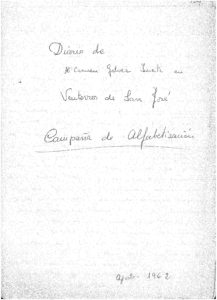 Diario de
Mª Carmen en
Ventorros de San José
Campaña de Alfabetización
1962